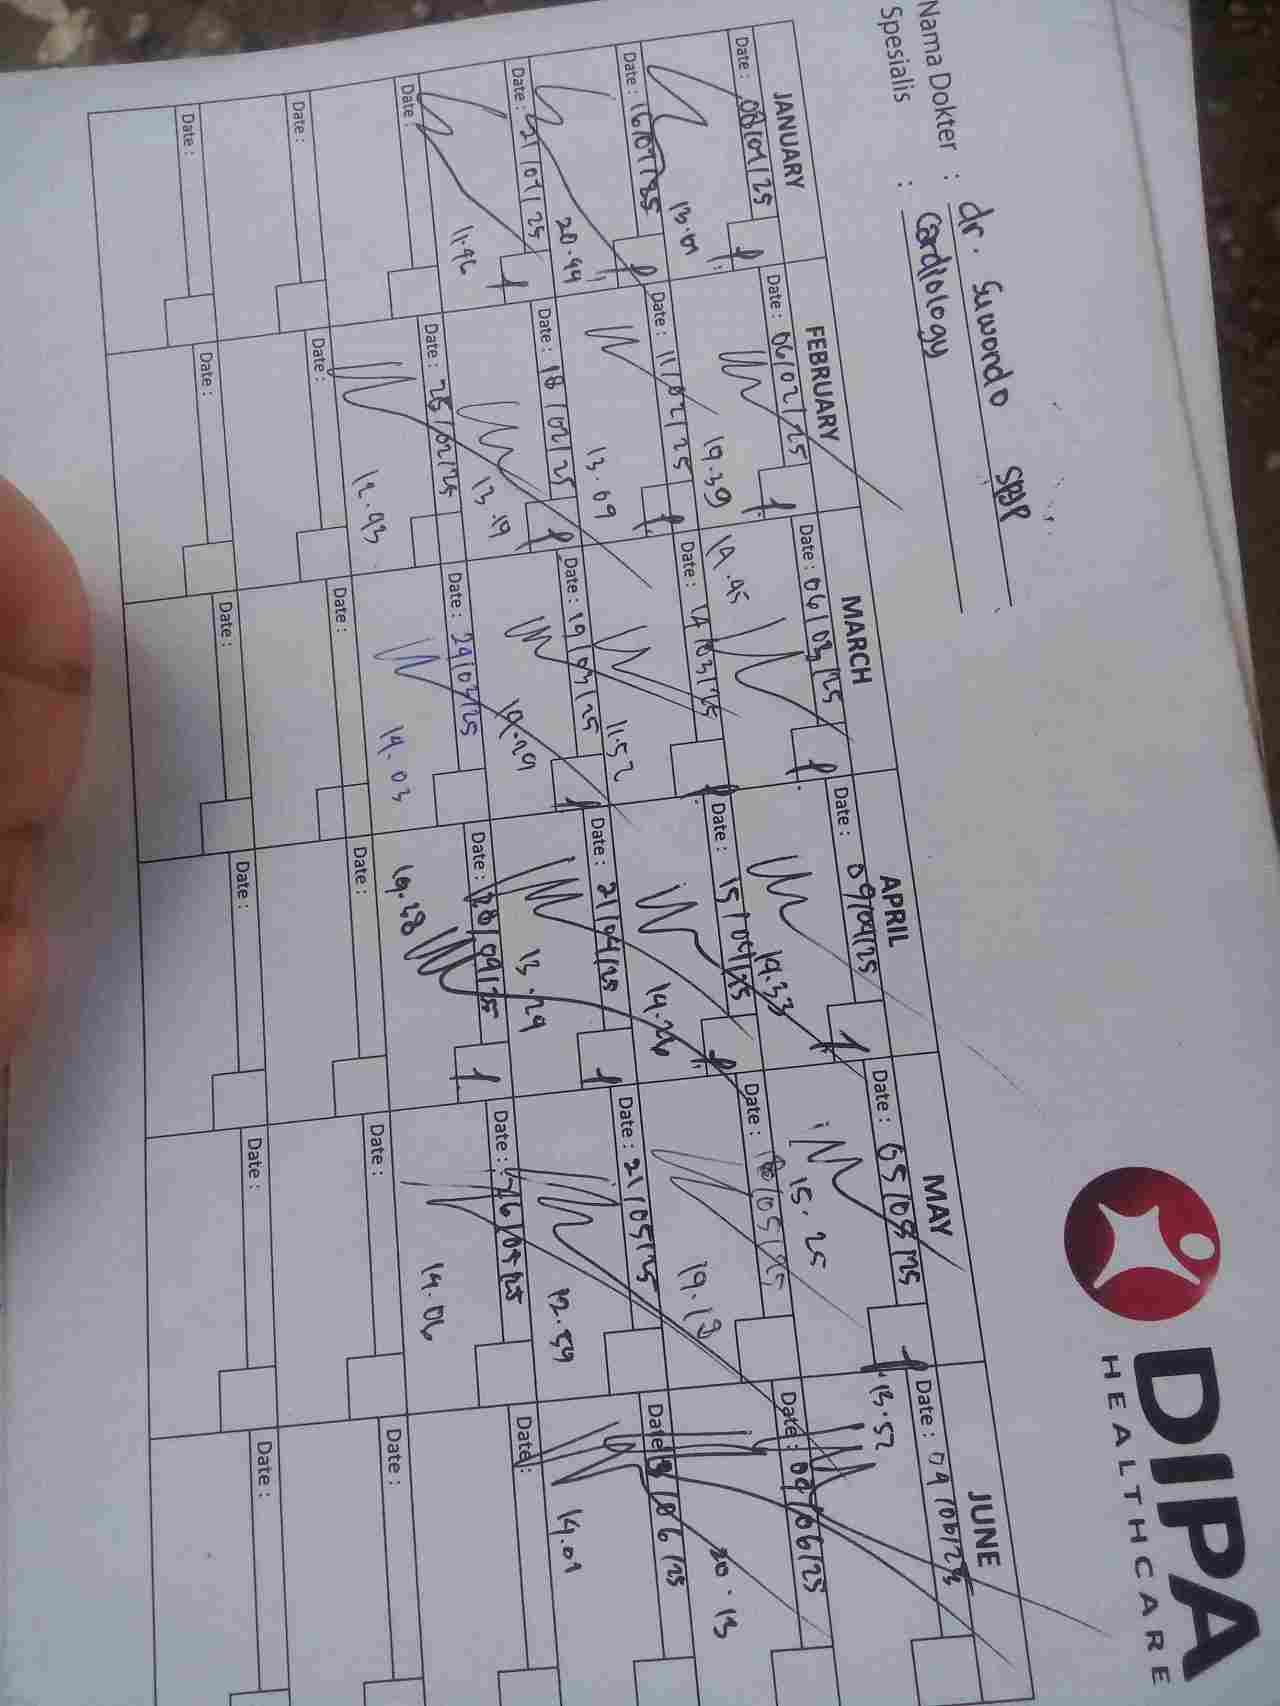 DIPA
HEALTHCARE
Nama Dokter : dr. Suwondo SPJP
Spesialis : Cardiology
JANUARY FEBRUARY MARCH APRIL MAY JUNE
Date: 08/01/25 Date: 06/02/25 Date: 06/03/25 Date: 09/04/25 Date: 05/05/25 Date: 04/06/25
13.01 19.39 14.45 14.33 15.25 13.52
Date: 16/01/25 Date: 11/02/25 Date: 14/03/25 Date: 15/04/25 Date: /05/25 Date: 09/06/25
20.44 13.09 11.52 14.26 19.18 20.13
Date: 21/01/25 Date: 18/02/25 Date: 19/03/25 Date: 21/04/25 Date: 21/05/25 Date: 13/06/25
11.46 13.19 14.29 13.29 12.59 14.01
Date: Date: 25/02/25 Date: 24/03/25 Date: 28/04/25 Date: 26/05/25 Date:
12.43 14.03 19.28 14.06
Date: Date: Date: Date: Date: Date:
Date: Date: Date: Date: Date: Date: